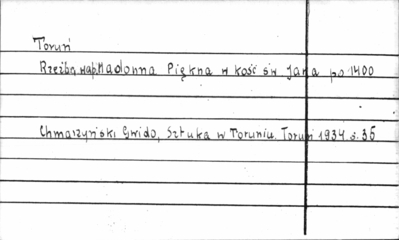 Toruń
Rzeźba, wap. Madonna Piękna w kośc św. Jana po 1400
Chmarzyński Gwido, Sztuka w Toruniu. Toruń 1934 s. 36